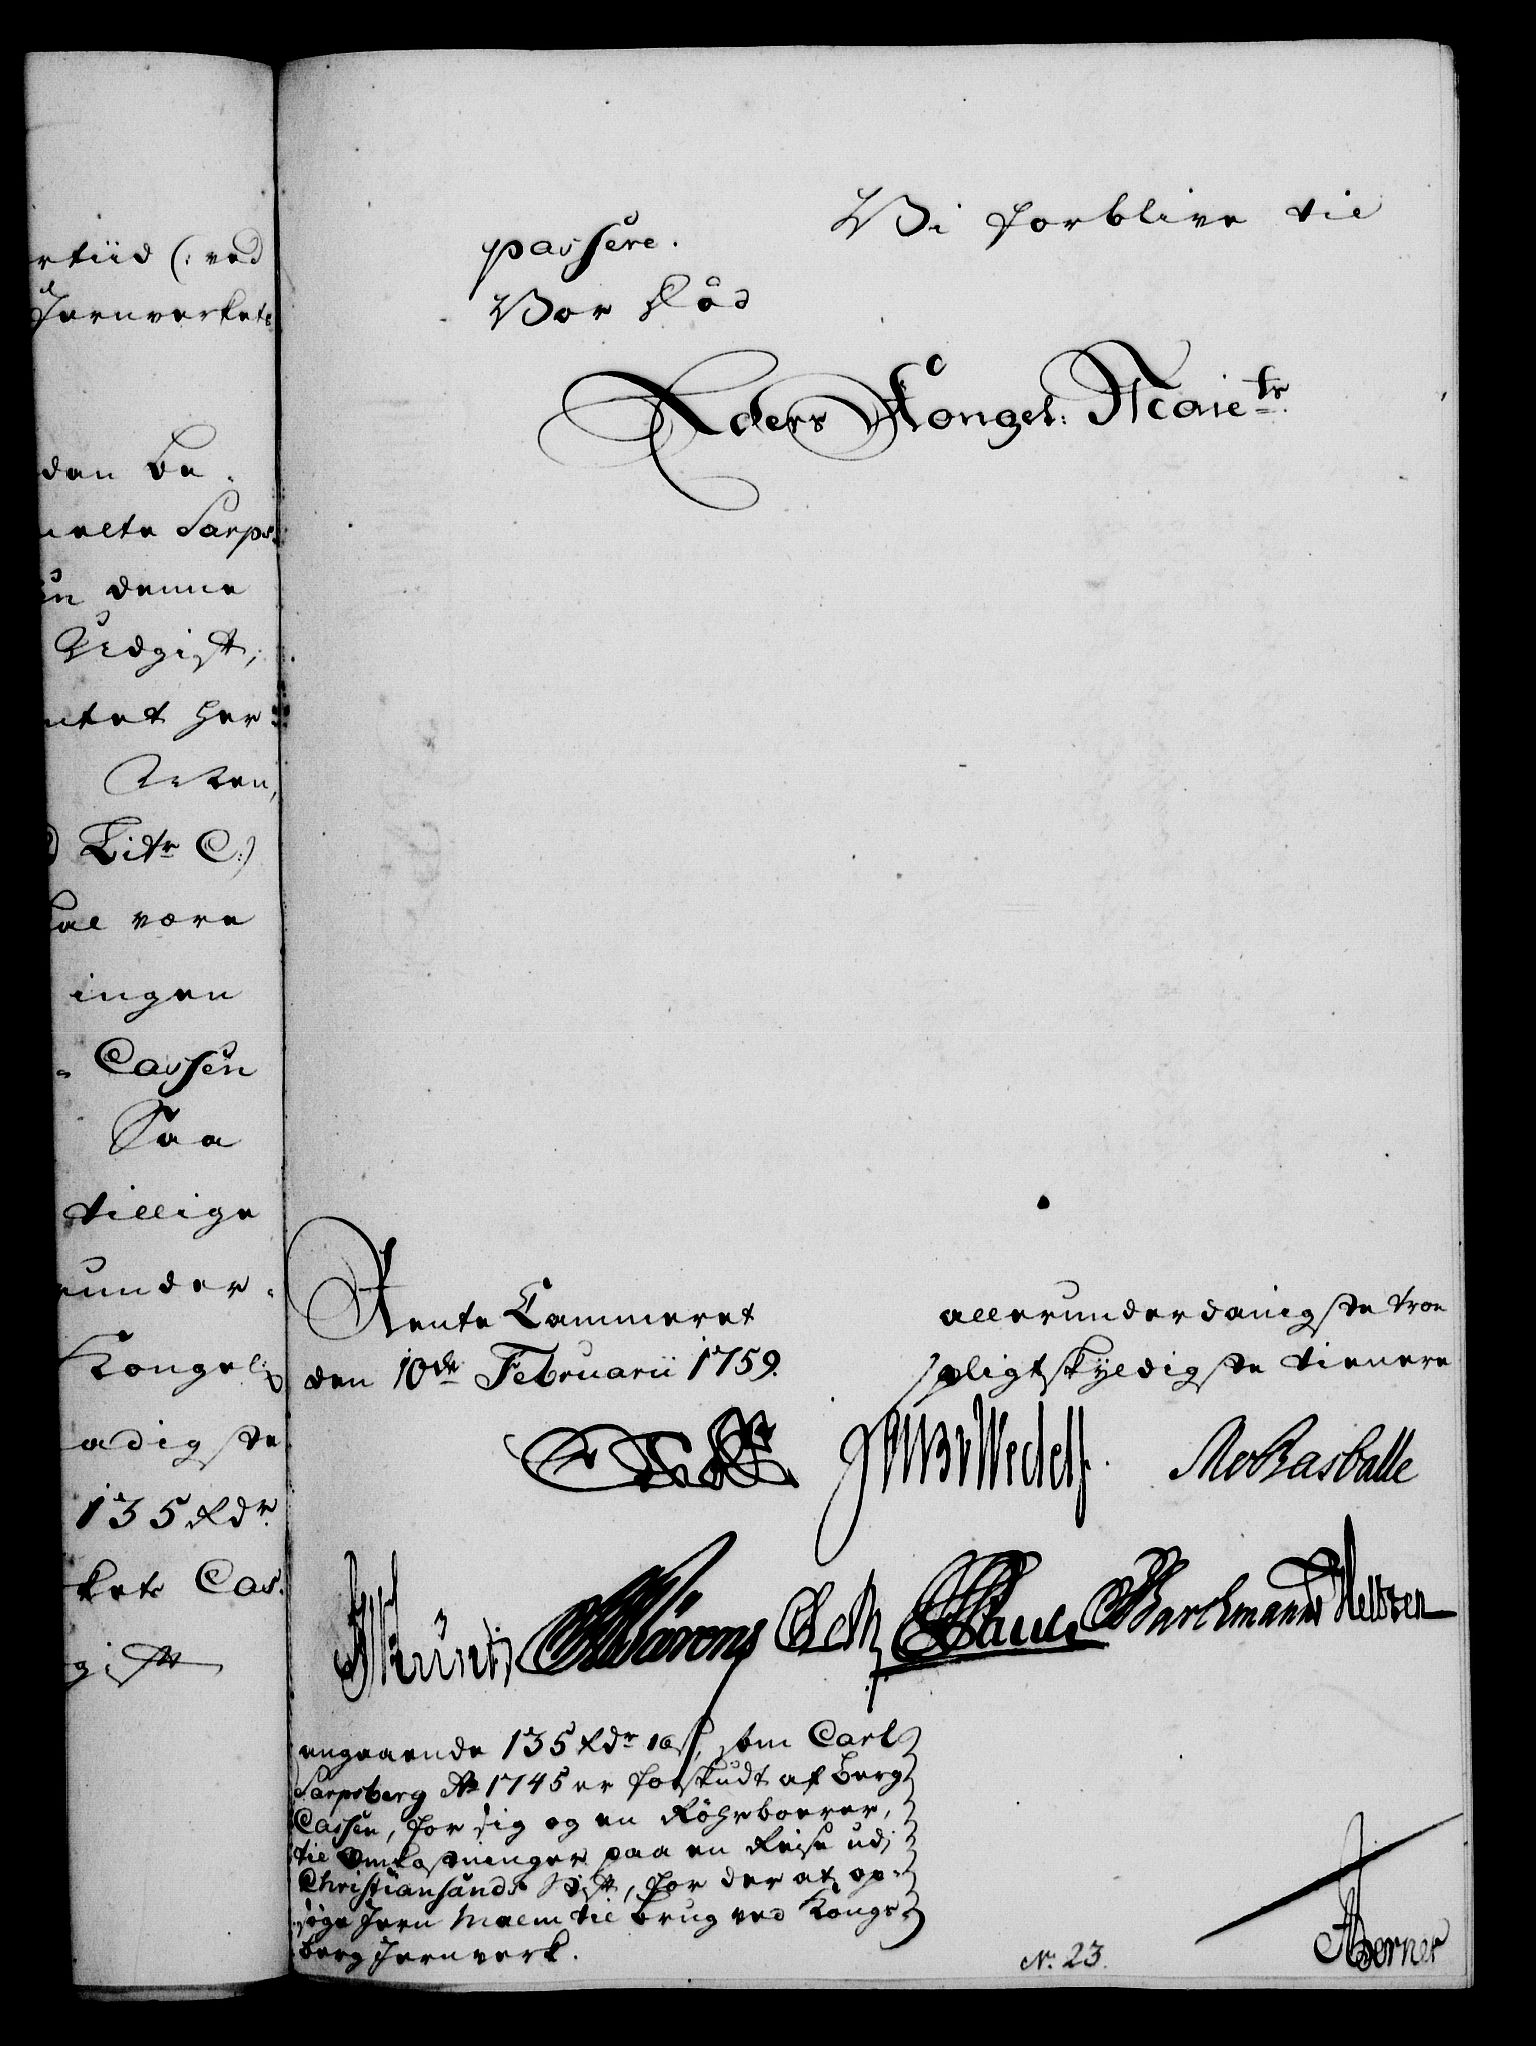 rtiid (: ved
Jernverkets
den be-
melte Sarps-
denne
Udgift;
ntet her
Acten,
Litr C:)
kal være
ingen
Cassen
Saa
tillige
under-
Kongel:
adigste
135 Rdr
kets Cas-
gift
passere. Vi forblive til
Vor Död
Eders Kongel: Maiets
Rente Cammeret
den 10de Februarii 1759.
allerunderdanigste troe
pligtskyldigste tienere
Wedell
angaaende 135 Rdr 16 s, som Carl
Sarpsberg Ao 1745 er forskudt af Berg
Cassen, for sig og en Röhrboerer,
til Omkostninger paa en Reise udj
Christiansands Stift, for der at op-
söge Jern Malm til brug ved Kongs-
berg Jernverk.
No 23.